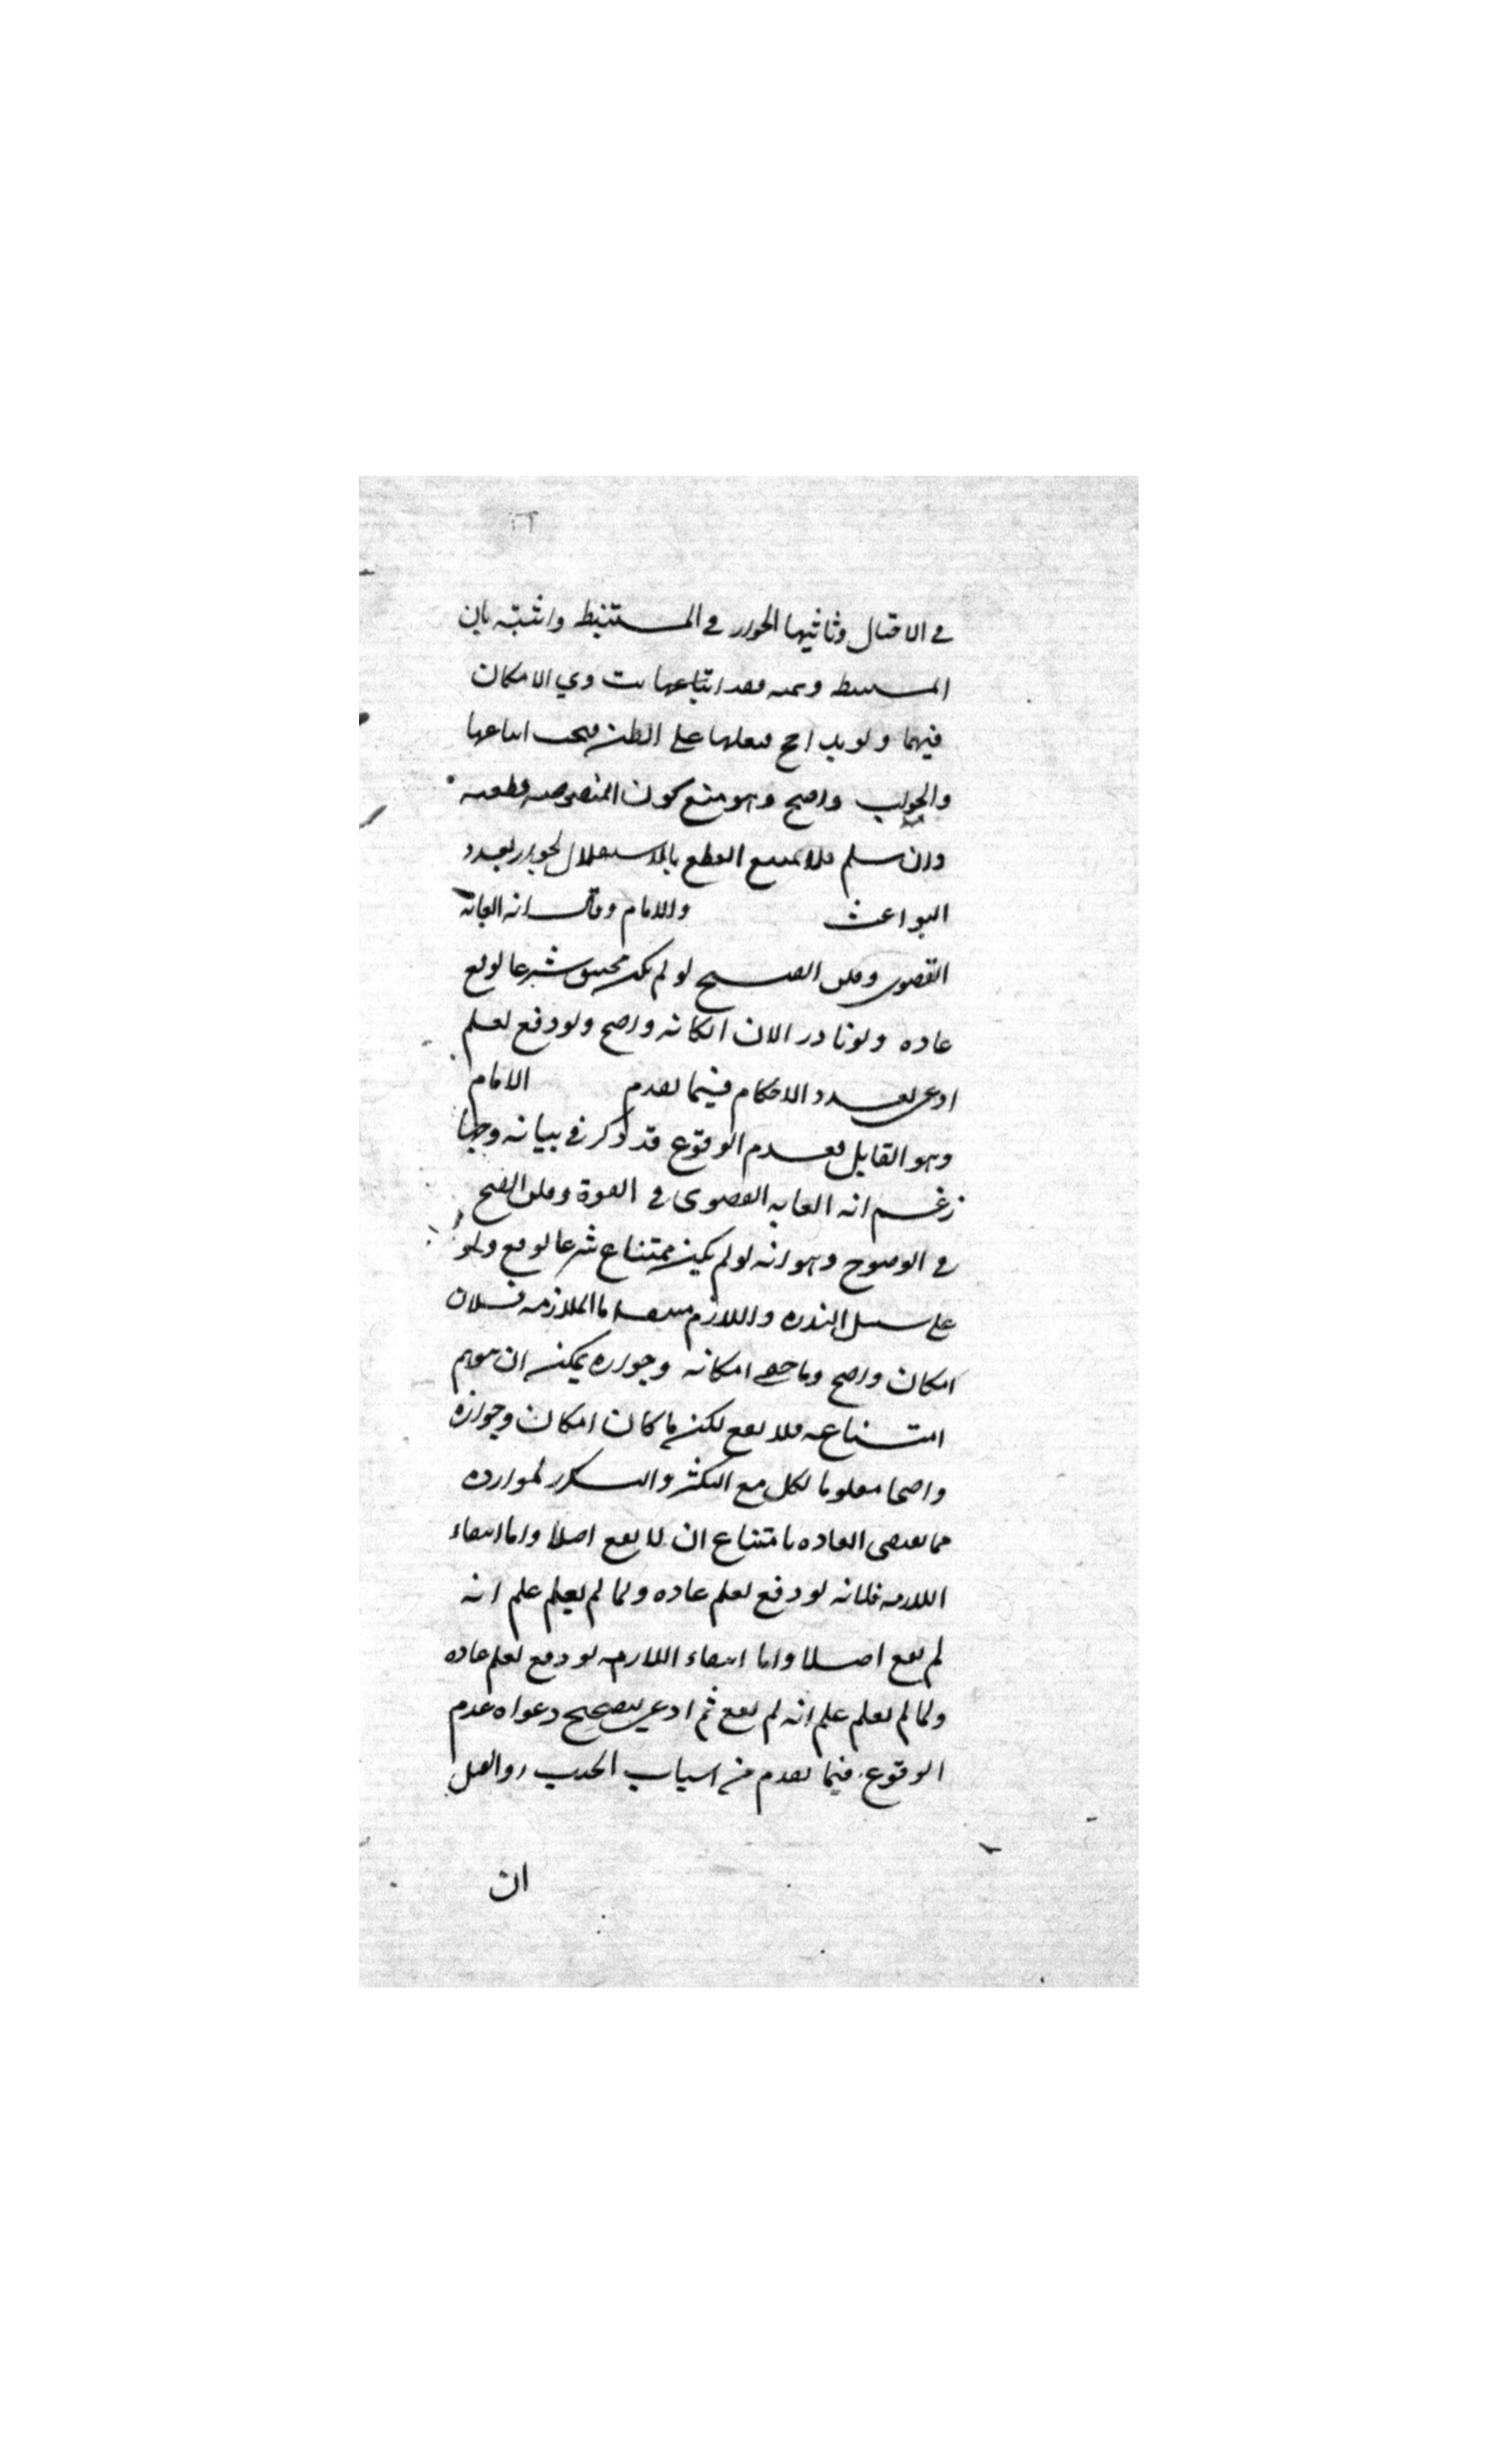 في الاقتال وثانيها الجواز في المستنبط واثبته بان
المستنبط وهمية فقد اتباعها يت وي الامكان
فيهما ولو بد امح فعلها على الظن فيجب اتباعها
والجواب واضح وهو منع كون المنصوصه قطعيه
وان سلم فلا يمنع القطع بالاستقلال لجواز تعدد
البواعث والامام وقال انه الغاية
القصوى وفلق الصبح لو لم يكن محسوس شرعا لوقع
عاده ولو نادر الان امكانه واضح ولو وقع لعلم
ادعى تعدد الاحكام فيما تقدم الامام
وهو القايل بعدم الوقوع قد ذكر في بيانه وجها
زعم انه الغايه القصوى في القوة وفلق الصبح
في الوضوح وهو انه لو لم يكن ممتناع شرعا لوقع ولو
على سبيل الندره واللازم منتف اما الملازمه فلان
امكان واضح وما خفي امكانه وجوازه يمكن ان يتوهم
امتناعه فلا يقع لكن ما كان امكان وجوازه
واضحا معلوما لكل مع التكثر والتكرر لموارده
مما يقضي العاده بامتناع ان لا يقع اصلا واما انتفاء
اللازمه فلانه لو وقع لعلم عاده ولما لم يعلم علم انه
لم يقع اصلا واما انتفاء اللازمه لو وقع لعلم عاده
ولما لم يعلم علم انه لم يقع ثم ادعى لتصحيح دعواه عدم
الوقوع فيما تقدم من اسباب الحدث والقتل
ان